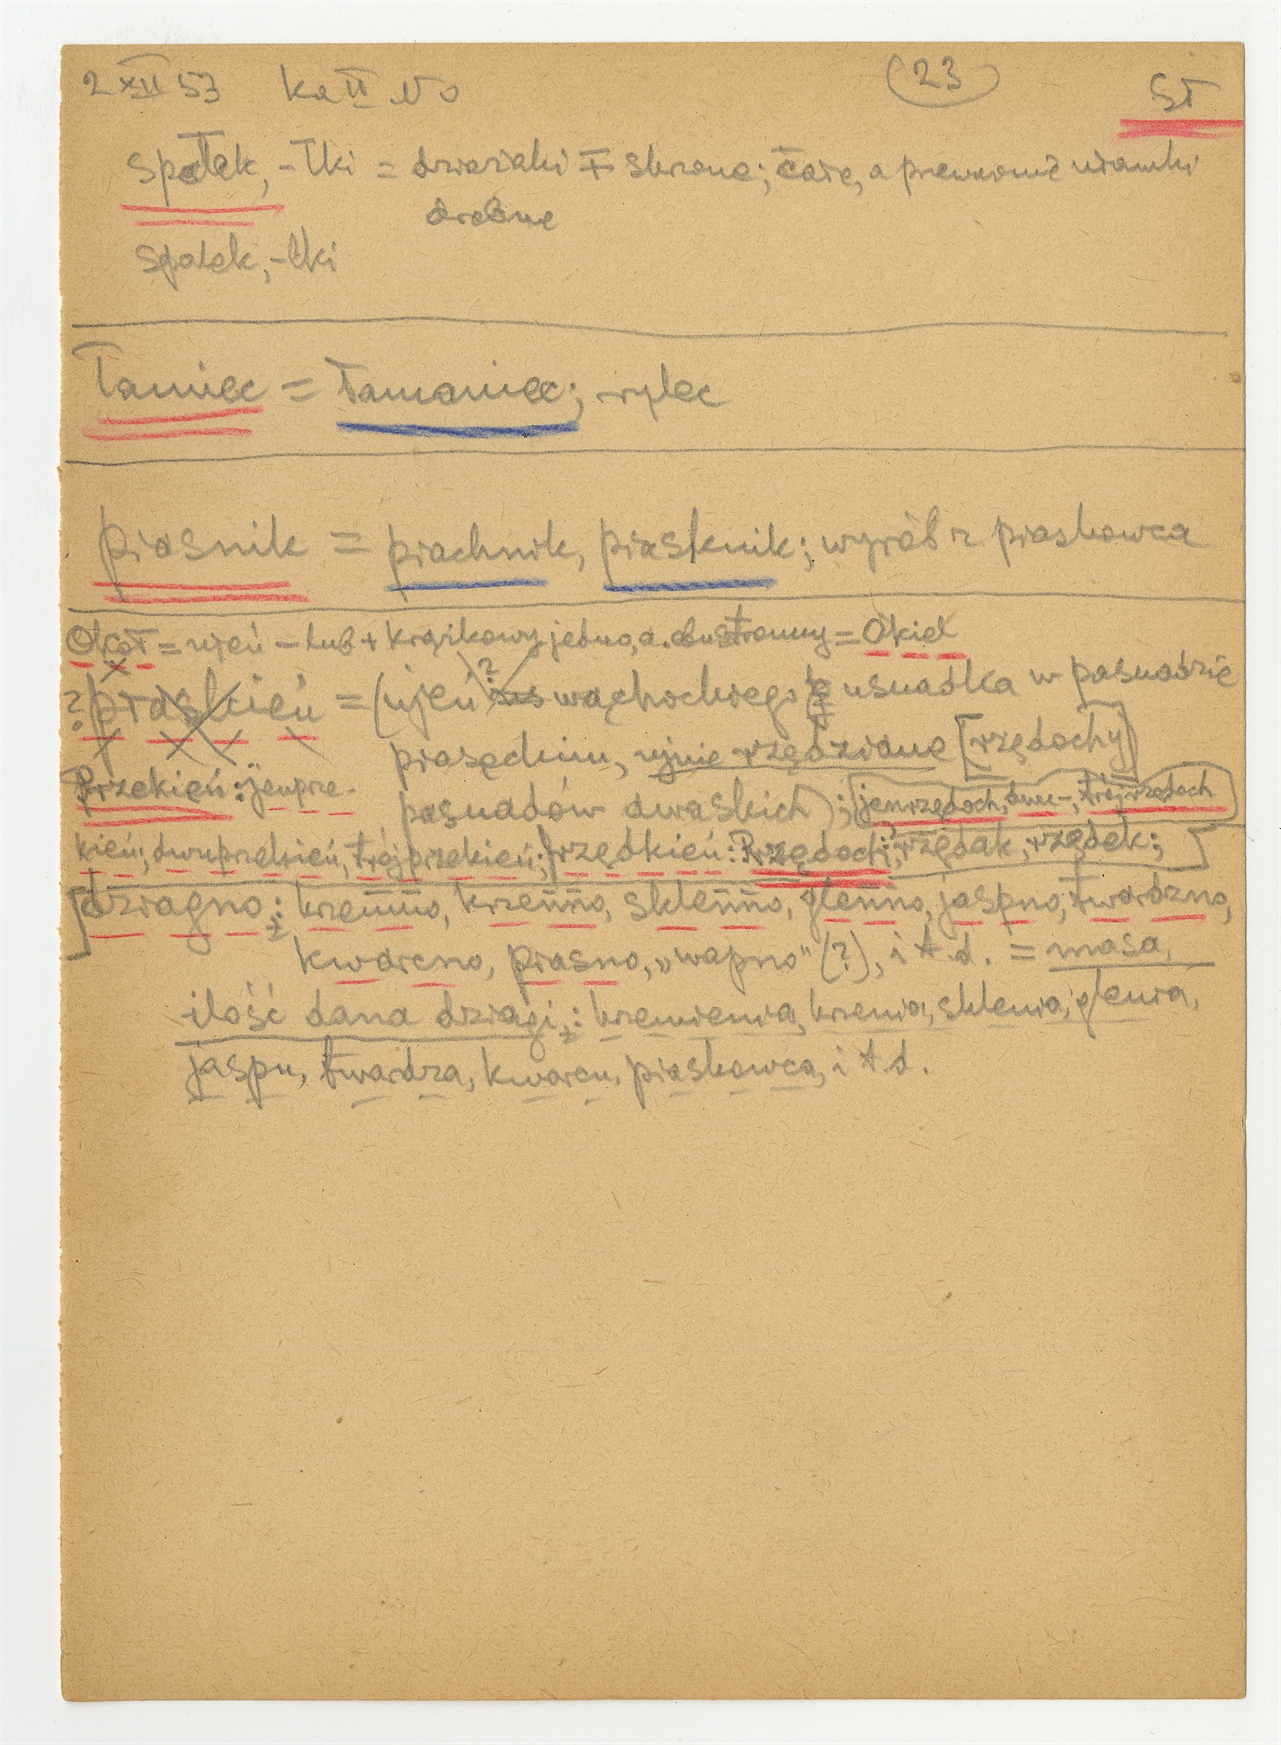 2 XII 53 Ka II No 23 ST
spałek, -łki = dziaziahi ∓ skrzone; całe, a przeważnie ułamki
drobne
spalek, -lki
Łamiec = łamaniec; rylec
piasnik = piachnik, piasknik; wyrób z piaskowca
Okół = ujeń - lub + krążkowy jedno, a. obustronny = Okiel
? piaskień = (ujeń ? wąchockiego usuadka w pasuadzie
piaséckim, ujnie rzędziane [rzędochy]
Przekień: jenprze-
pasuadów dwaskich); (jenrzędoch, dwu-, trójrzędoch)
kień, dwuprzekień, trójprzekień; rzędkień: Rzędoch; rzędak, rzędek;
dziagno: krzemno, krzenno, sklenno, glenno, jaspno, twardzno,
kwarcno, piasno, „wapno" (?), i t.d. = masa,
ilość dana dziagi: krzemienia, krzenia, sklenia, glenia,
jaspu, twardza, kwarcu, piaskowca, i t.d.